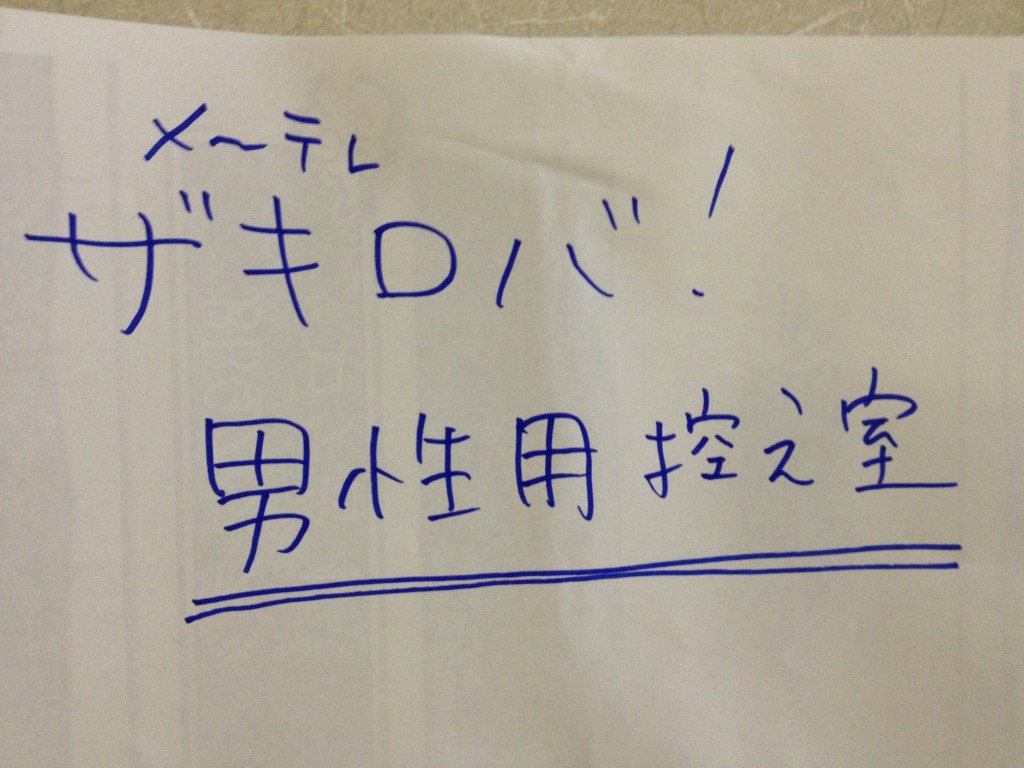 メ〜テレ
ザキロバ!
男性用控え室